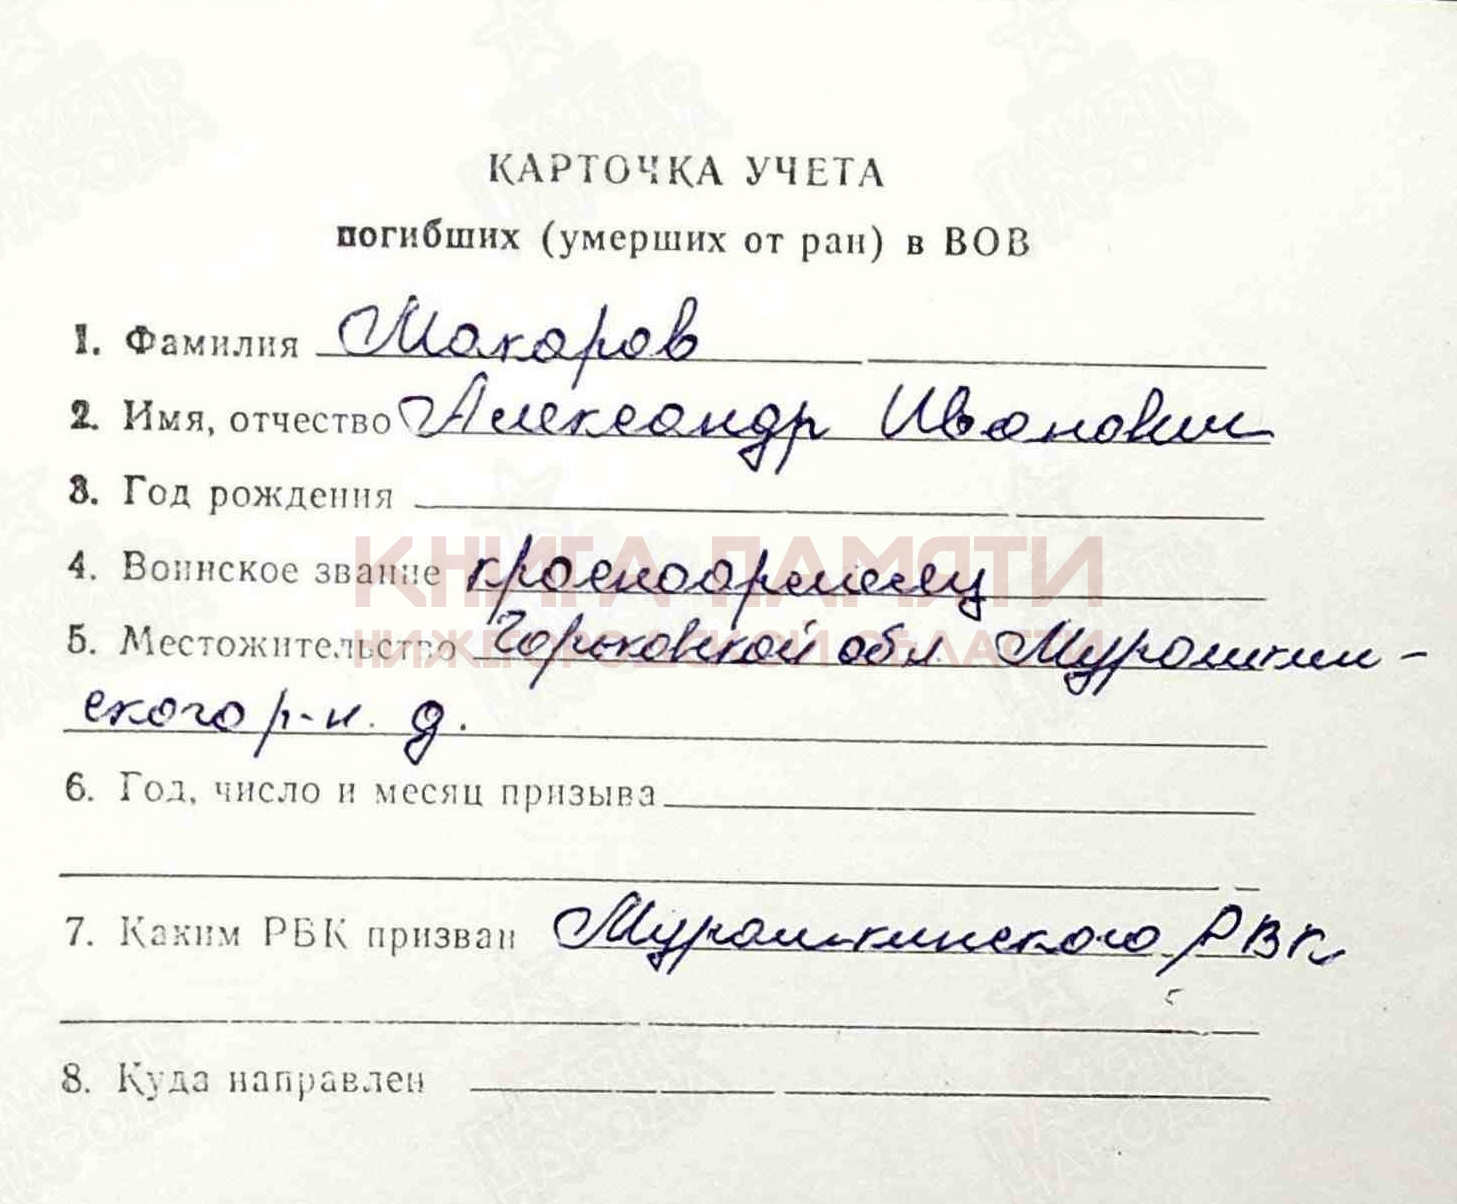 КАРТОЧКА УЧЕТА
погибших (умерших от ран) в ВОВ
1. Фамилия Макаров
2. Имя, отчество Александр Иванович
3. Год рождения
4. Воинское звание красноармеец
КНИГА ПАМЯТИ
5. Местожительство Горьковской обл Мурашкин-
НИЖЕГОРОДСКОЙ ОБЛАСТИ
ского р-н. д.
6. Год, число и месяц призыва
7. Каким РВК призван Мурашкинского РВК
8. Куда направлен